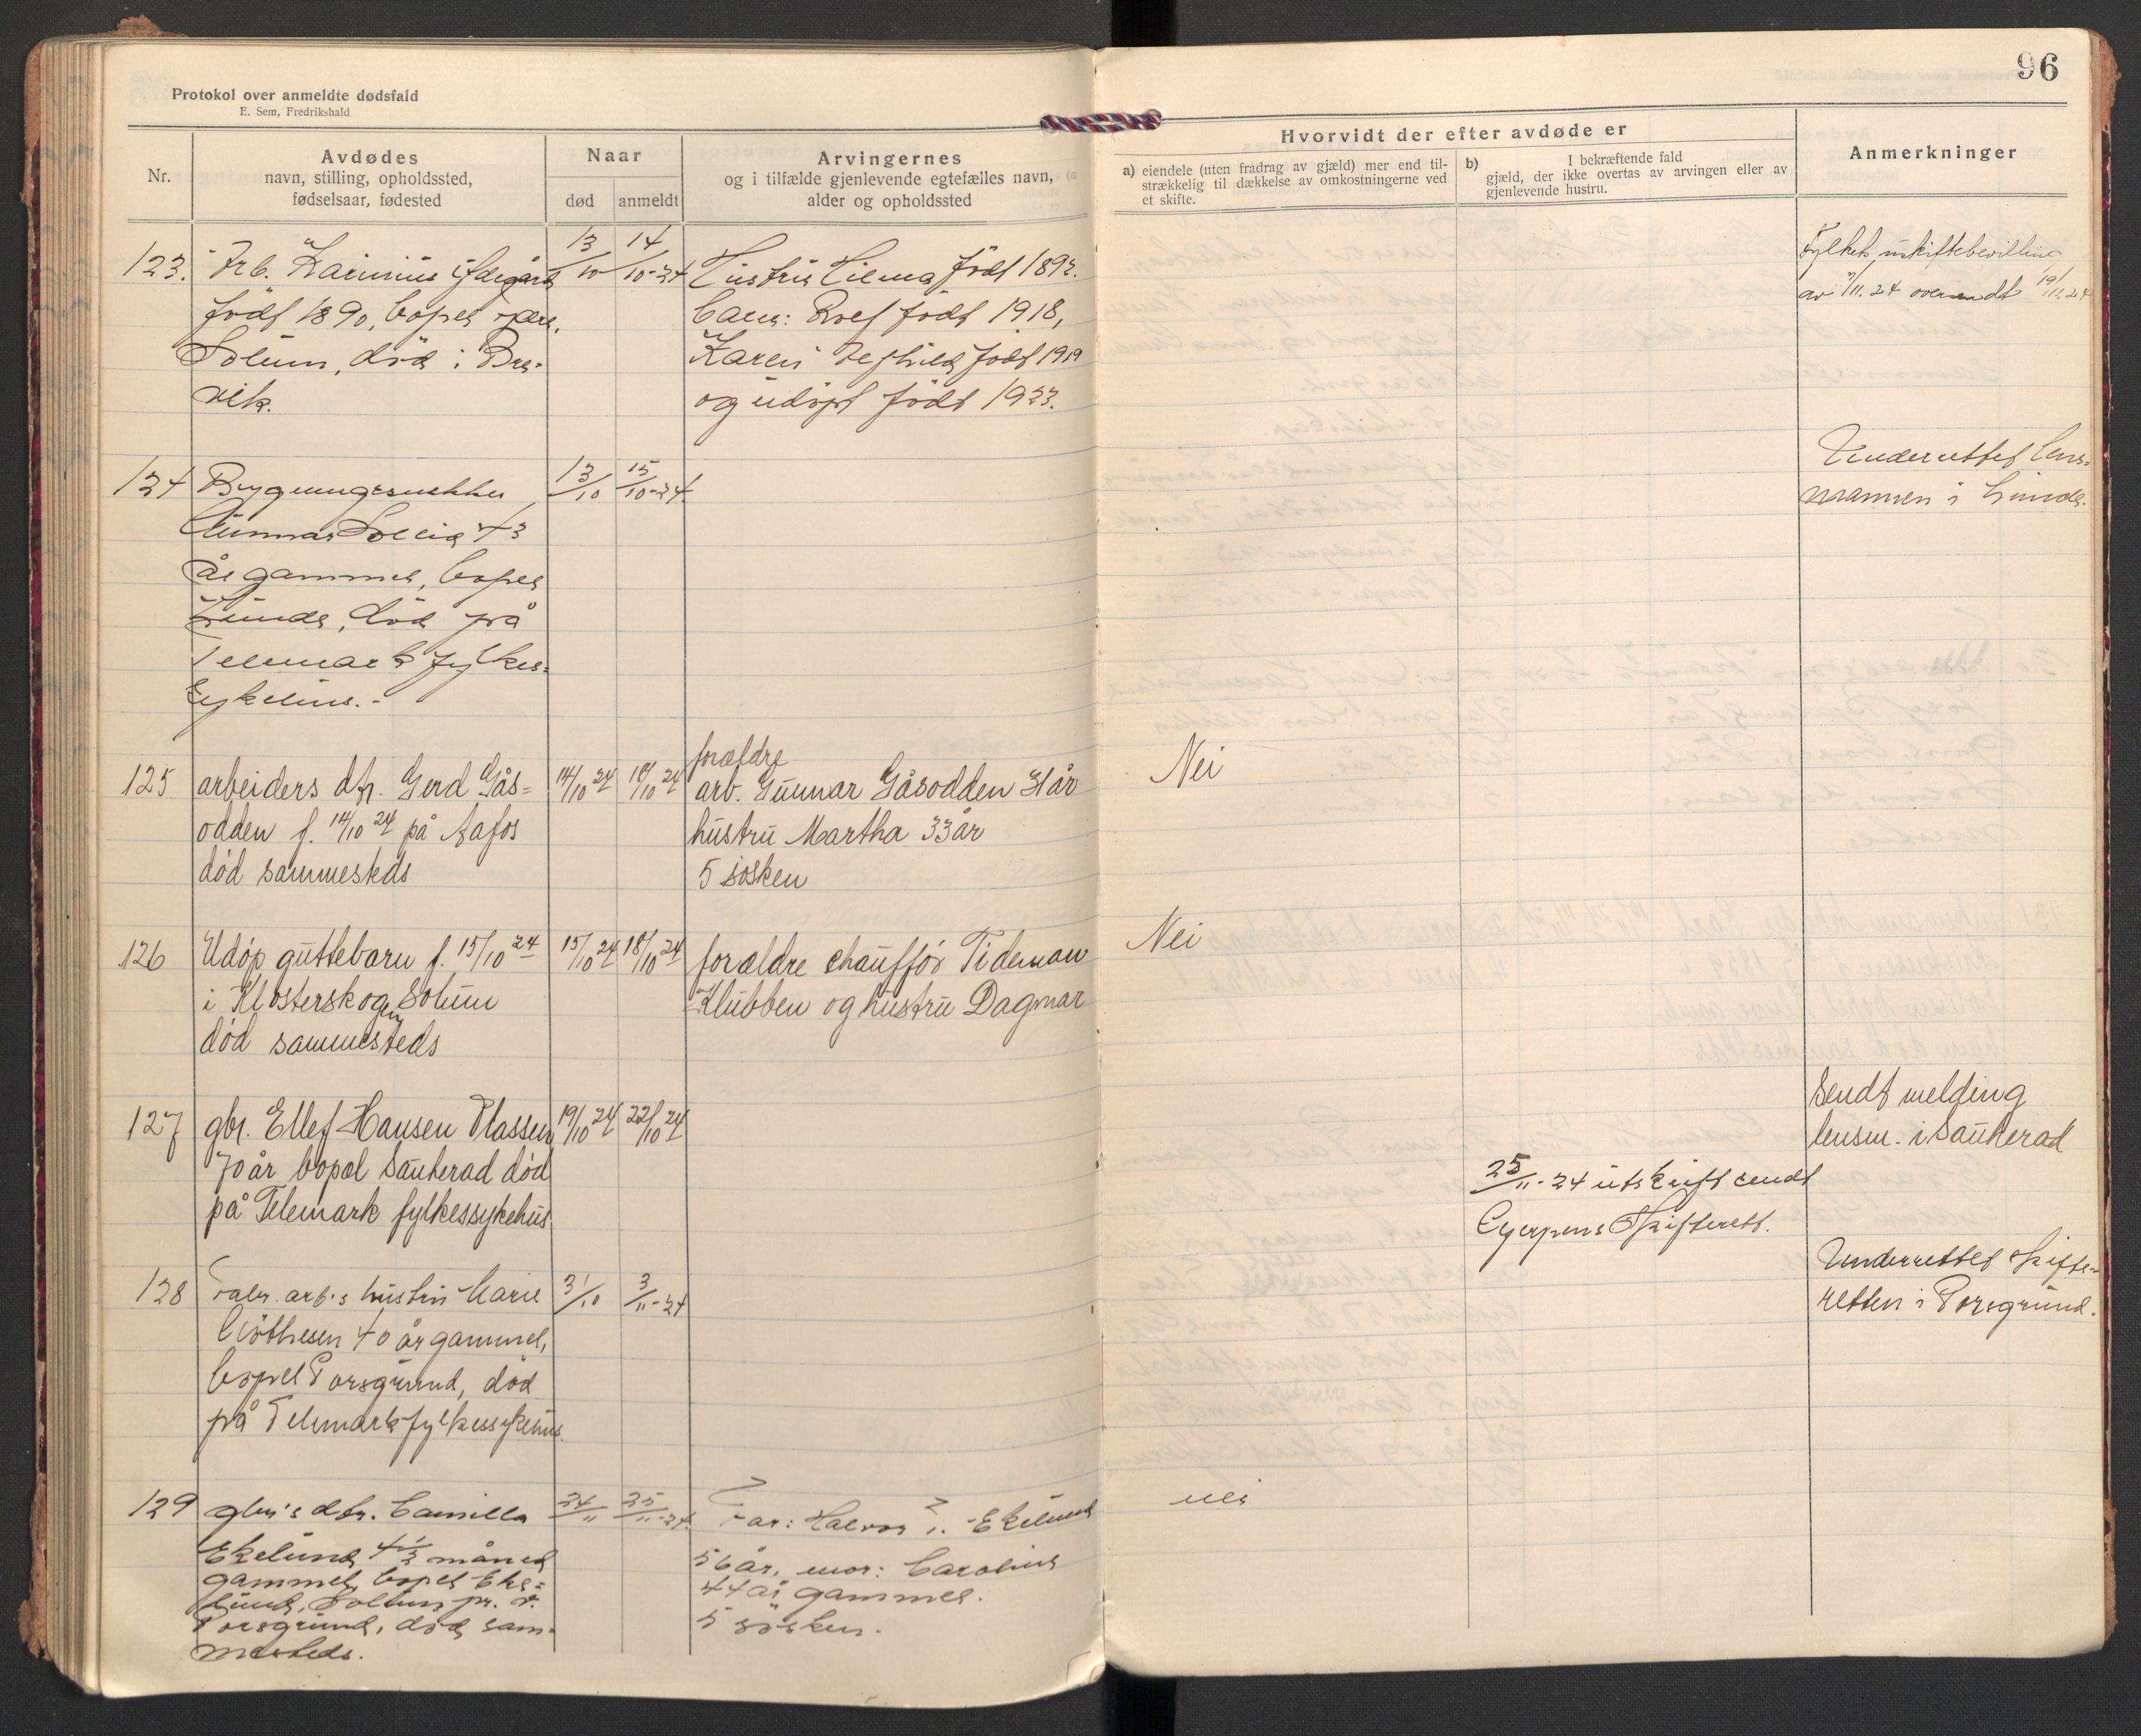 96
Protokol over anmeldte dødsfald
E. Sem, Fredrikshald
Nr.
Avdødes
navn, stilling, opholdssted,
fødselsaar, fødested
Naar
død
anmeldt
Arvingernes
og i tilfælde gjenlevende egtefælles navn,
alder og opholdssted
Hvorvidt der efter avdøde er
a) eiendele (uten fradrag av gjæld) mer end til-
strækkelig til dækkelse av omkostningerne ved
et skifte.
b) I bekræftende fald
gjæld, der ikke overtas av arvingen eller av
gjenlevende hustru.
Anmerkninger
123. Karinius
født 1890, bopel
Solum, død i Bre-
vik.
13/10
14/10-24
Hustru Hilma født 1892.
Barn: Rolf født 1918,
Karen født 1919
og udøpt født 1923.
av 7/11.24 oversendt 19/11.24
124 Bygningssnekker
Gunnar 43
år gammel, bopel
Lunde, død på
Telemark fylkes-
sykehus.-
13/10
15/10-24.
Underrettet lens-
mannen i Lunde.
125 arbeiders dtr. Gerd Gås=
odden f. 14/10 24 på Aafos
død sammesteds
14/10 24
forældre
arb. Gunnar Gåsodden 31 år
hustru Martha 33 år
5 søsken
Nei
126 Udøp guttebarn f. 15/10 24
i Klosterskogen Solum
død sammesteds
15/10 24
18/10 24
forældre chauffør Tideman
Klubben og hustru Dagmar
Nei
127 gbr. Ellef Hansen Plassen
70 år bopæl Sauherad død
på Telemark fylkessykehus
19/10 24
22/10 24
Sendt melding
lensm. i Sauherad
25/11-24 utskrift sendt
Gjerpens Skifterett.
128 Fabr. arb.s hustru Marie
40 år gammel,
bopel Porsgrund, død
på Telemark fylkessykehus.
31/10
3/11-24
Underrettet skifte-
retten i Porsgrund.
129 gbr's dtr. Camilla
Ekelund 4 1/2 måned
gammel, bopel Eke=
lund, Solum pr. P.
Porsgrund, død sam-
mesteds.
24/11
25/11-24.
Far: Halvor I. Ekelund
56 år, mor: Caroline
44 år gammel.
5 søsken.
nei